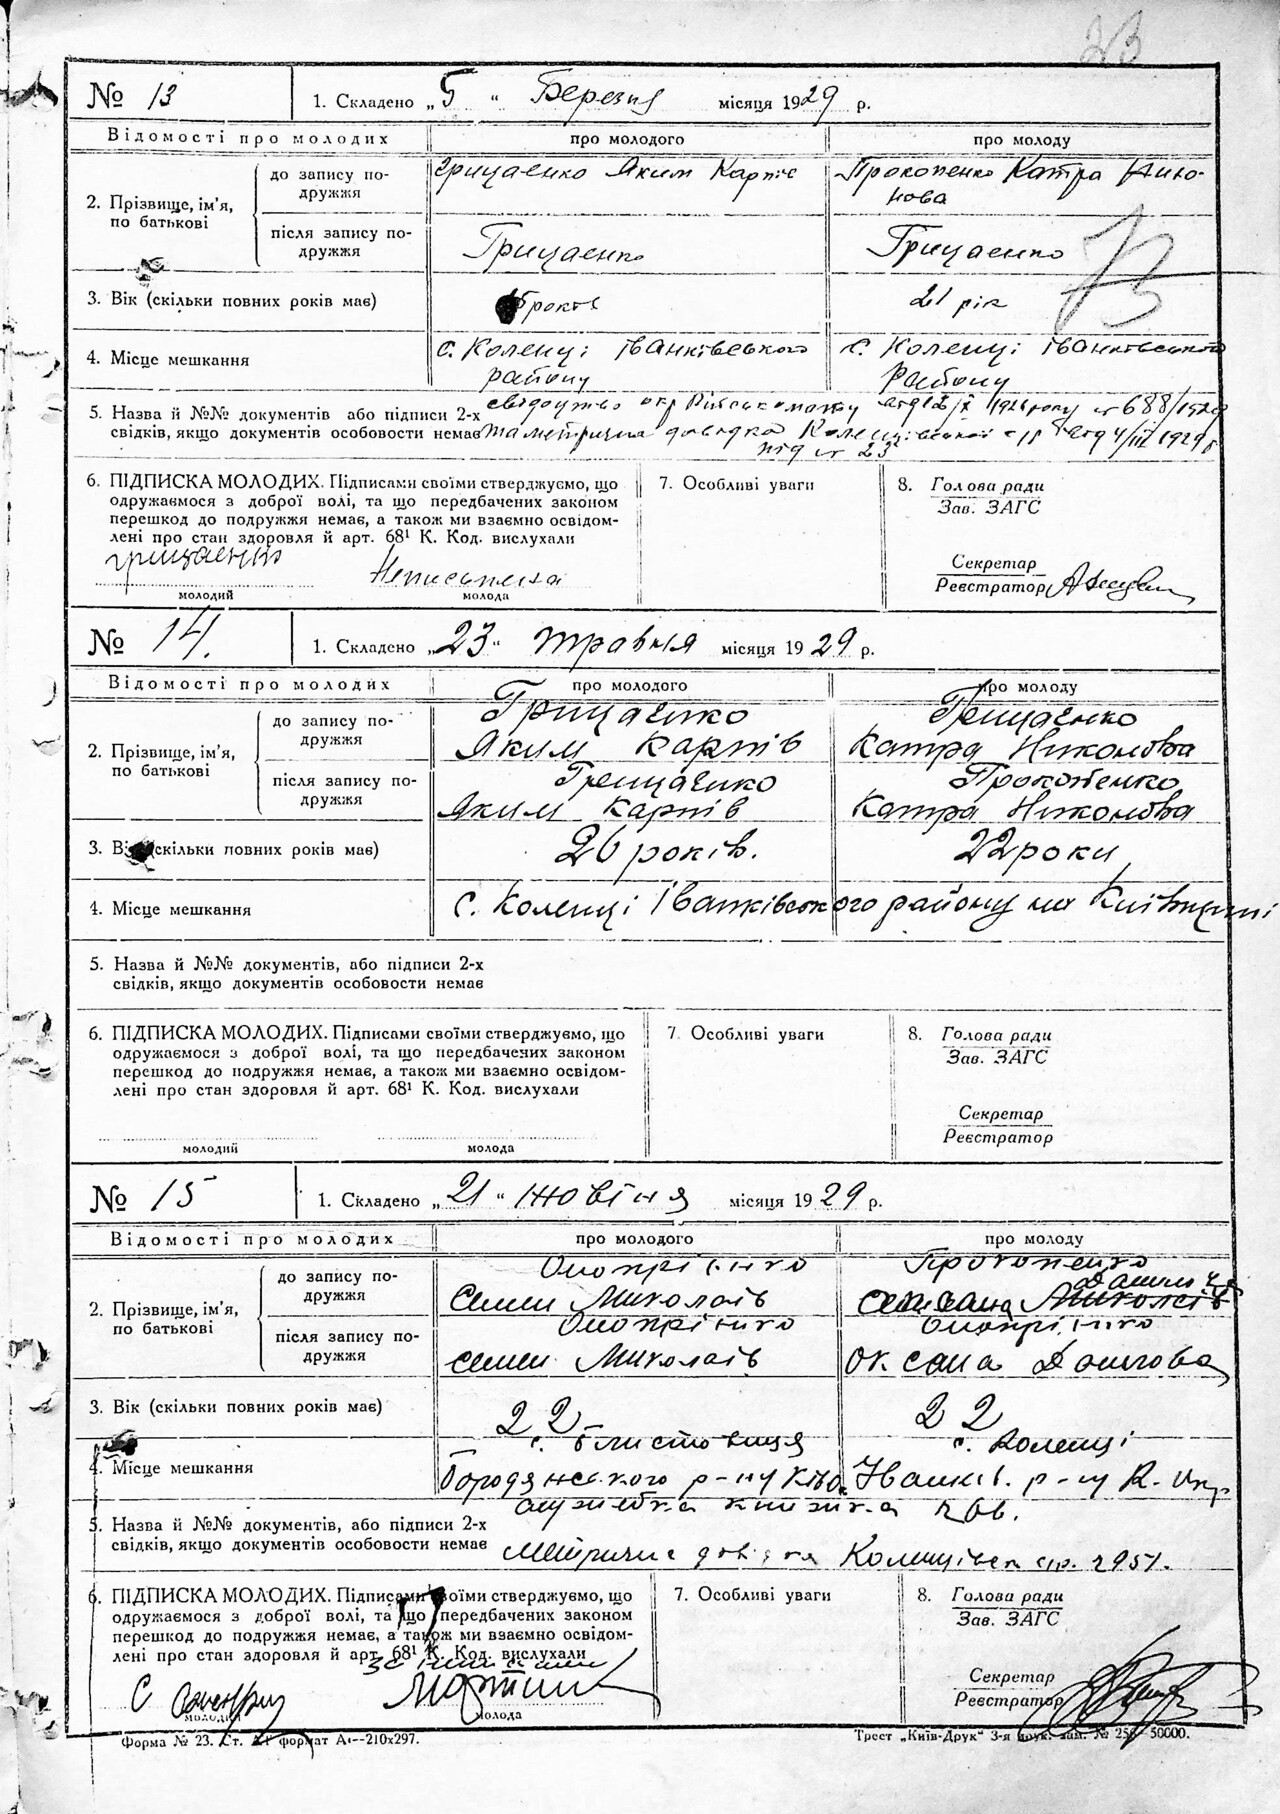 23
№ 13
1. Складено „5“ Березня місяця 1929 р.
Відомості про молодих
про молодого
про молоду
2. Прізвище, ім'я, по батькові
до запису подружжя
Грицаенко Яким Карпів
Прокопенко Катра Нико-
нова
після запису подружжя
Грицаенко
Грицаенко
3. Вік (скільки повних років має)
років
21 рік
4. Місце мешкання
с. Коленці Іванківського
району
с. Коленці Іванківського
району
5. Назва й №№ документів або підписи 2-х
свідків, якщо документів особовости немає
свідоцтво окр Військомату від
688/1529
та метрична довідка Коленцівської с/р від 4/III 1929 р
під № 23
6. ПІДПИСКА МОЛОДИХ. Підписами своїми стверджуємо, що
одружаємося з доброї волі, та що передбачених законом
перешкод до подружжя немає, а також ми взаємно освідом-
лені про стан здоровля й арт. 68¹ К. Код. вислухали
Грицаенко
Неписьмена
молодий
молода
7. Особливі уваги
8. Голова ради
Зав. ЗАГС
Секретар
Реєстратор
№ 14.
1. Складено „23“ травня місяця 1929 р.
Відомості про молодих
про молодого
про молоду
2. Прізвище, ім'я, по батькові
до запису подружжя
Грицаенко
Яким Карпів
Грицаенко
Катра Никонова
після запису подружжя
Грицаенко
Яким Карпів
Прокопенко
Катра Никонова
3. Вік (скільки повних років має)
26 років.
22 роки
4. Місце мешкання
с. Коленці Іванківського району на Київщині
5. Назва й №№ документів, або підписи 2-х
свідків, якщо документів особовости немає
6. ПІДПИСКА МОЛОДИХ. Підписами своїми стверджуємо, що
одружаємося з доброї волі, та що передбачених законом
перешкод до подружжя немає, а також ми взаємно освідом-
лені про стан здоровля й арт. 68¹ К. Код. вислухали
молодий
молода
7. Особливі уваги
8. Голова ради
Зав. ЗАГС
Секретар
Реєстратор
№ 15
1. Складено „21“ жовтня місяця 1929 р.
Відомості про молодих
про молодого
про молоду
2. Прізвище, ім'я, по батькові
до запису подружжя
Онопрієнко
Семен Миколаїв
Прокопенко
Оксана Миколаїв
після запису подружжя
Онопрієнко
Семен Миколаїв
Онопрієнко
Оксана
3. Вік (скільки повних років має)
22
22
4. Місце мешкання
с. Блистовиця
Городянського р-ну
с. Коленці
Іванків. р-ну К. Окр
5. Назва й №№ документів, або підписи 2-х
свідків, якщо документів особовости немає
книжка
Метрична довідка Коленцівск с.р.
6. ПІДПИСКА МОЛОДИХ. Підписами своїми стверджуємо, що
одружаємося з доброї волі, та що передбачених законом
перешкод до подружжя немає, а також ми взаємно освідом-
лені про стан здоровля й арт. 68¹ К. Код. вислухали
молодий
молода
7. Особливі уваги
8. Голова ради
Зав. ЗАГС
Секретар
Реєстратор
Форма № 23. Ст. формат А—210х297.
Трест „Київ-Друк“ 3-я друк. зам. № 256—50000.